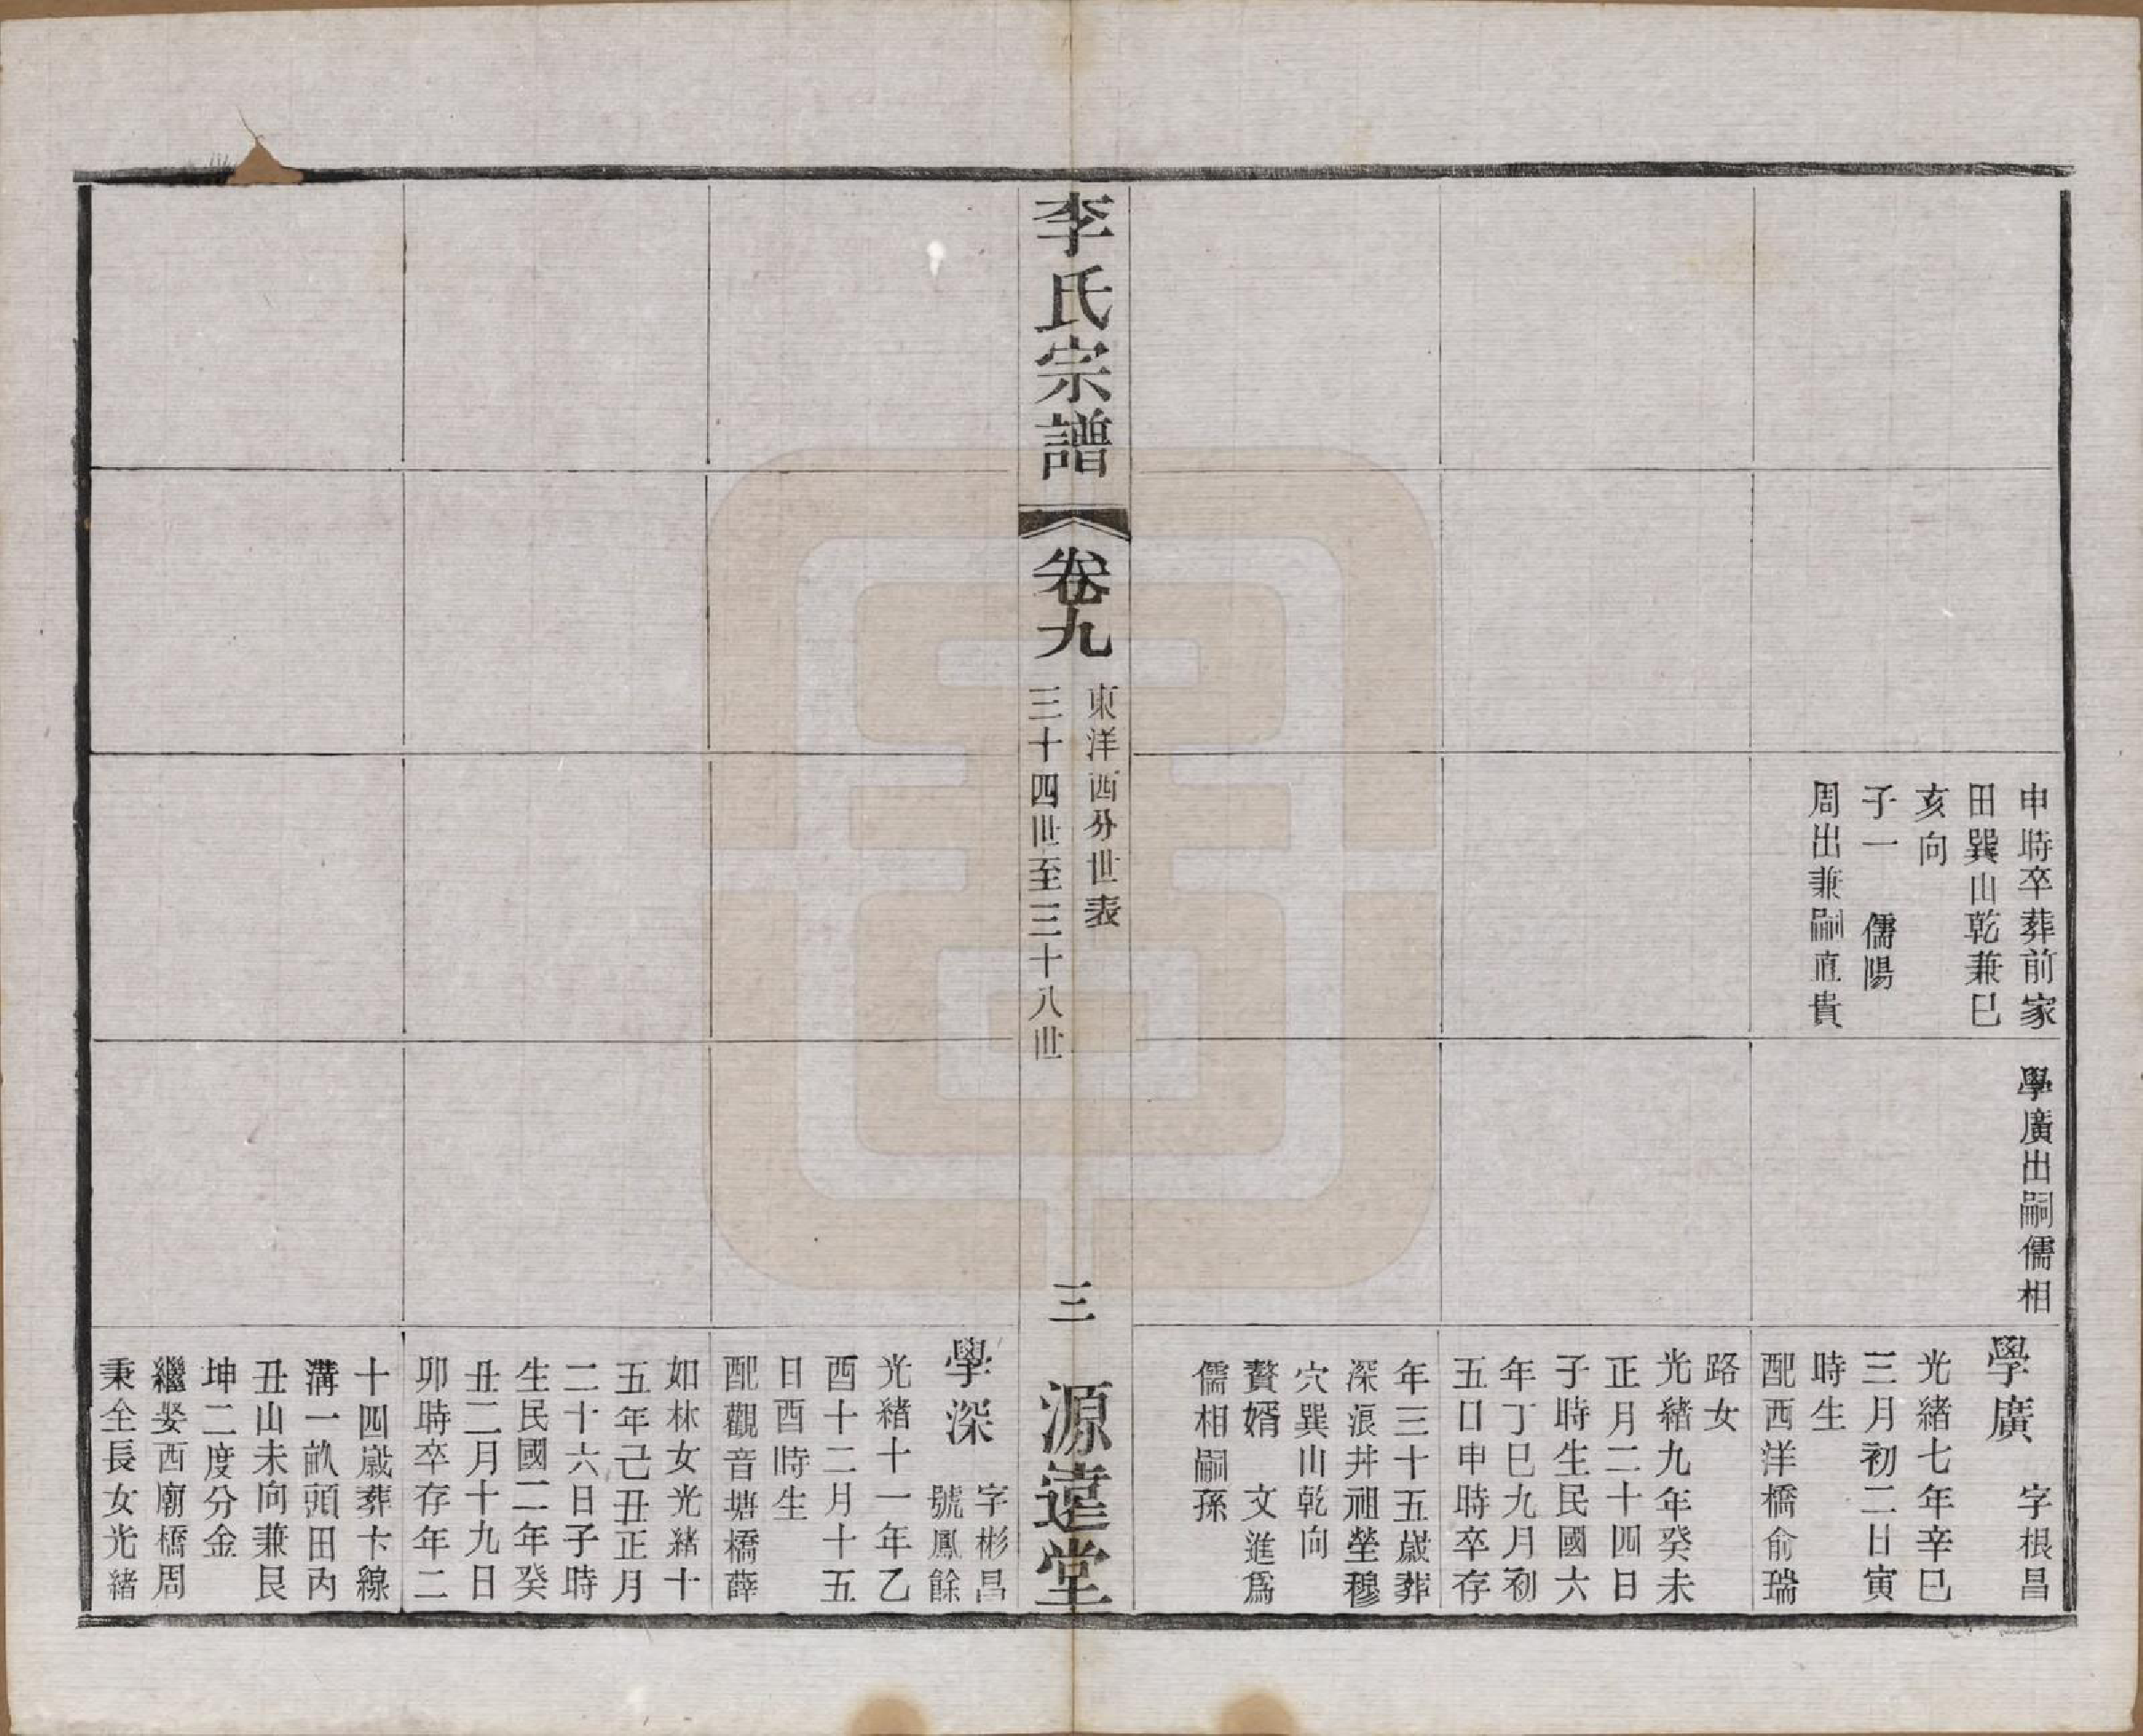 申時卒葬前家
田巽山乾兼巳
亥向
子一　儒陽
周出兼嗣直貴
學廣出嗣儒相
學廣　字根昌
光緒七年辛巳
三月初二日寅
時生
配西洋橋俞瑞
路女
光緒九年癸未
正月二十四日
子時生民國六
年丁巳九月初
五日申時卒存
年三十五歲葬
深浪井祖塋穆
穴巽山乾向
贅婿　文進爲
儒相嗣孫
李氏宗譜
卷九
東洋西分世表
三十四世至三十八世
三
源遠堂
學深　字彬昌
號鳳餘
光緒十一年乙
酉十二月十五
日酉時生
配觀音塘橋薛
如林女光緒十
五年己丑正月
二十六日子時
生民國二年癸
丑二月十九日
卯時卒存年二
十四歲葬卞線
溝一畝頭田丙
丑山未向兼艮
坤二度分金
繼娶西廟橋周
秉全長女光緒